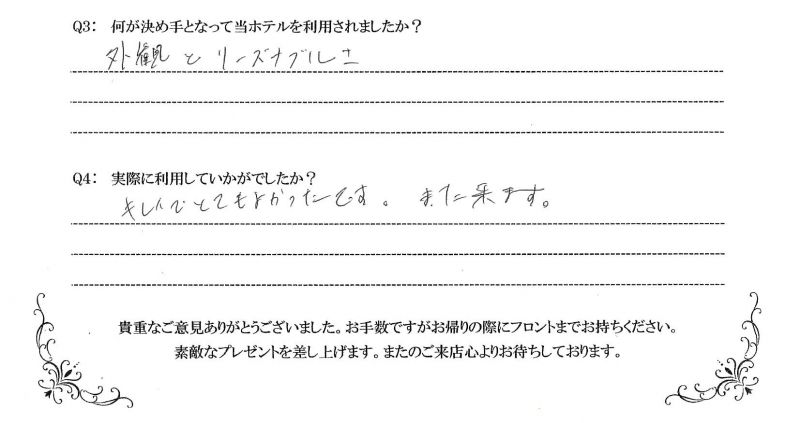 Q3: 何が決め手となって当ホテルを利用されましたか？
外観とリーズナブルさ
Q4: 実際に利用していかがでしたか？
キレイでとてもよかったです。また来ます。
貴重なご意見ありがとうございました。お手数ですがお帰りの際にフロントまでお持ちください。
素敵なプレゼントを差し上げます。またのご来店心よりお待ちしております。